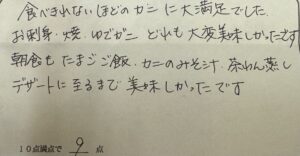 食べきれないほどのカニに大満足でした。
お刺身・焼・ゆでガニ どれも大変美味しかったです
朝食もたまごご飯、カニのみそ汁、茶わん蒸し
デザートに至るまで美味しかったです
10点満点で 9 点